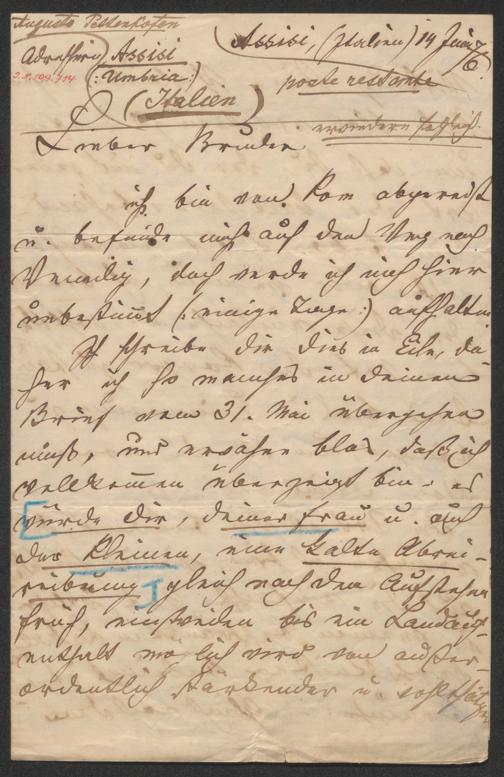 Augusto Pettenkofen
Assisi, (Italien) 14 Juni
Adressieren) Assisi
(: Umbria :)
poste restante
(Italien)
erwiedere
Lieber Bruder
ich bin von Rom abgereist
u. befinde mich auf den Weg nach
Venedig, doch werde ich mich hier
unbestimmt (: einige Tage :) aufhalten
Ich schreibe dir dies in Eile, da-
her ich so manches in deinem
Brief vom 31. Mai übergehen
muß, und erwähne blos, daß ich
vollkommen überzeugt bin - es
würde dir, deiner Frau u. auch
der Kleinen, eine kalte Abrei-
reibung gleich nach dem Aufstehen
früh, einstweilen bis ein Landauf-
enthalt möglich wird von außer-
ordentlich stärkender u.